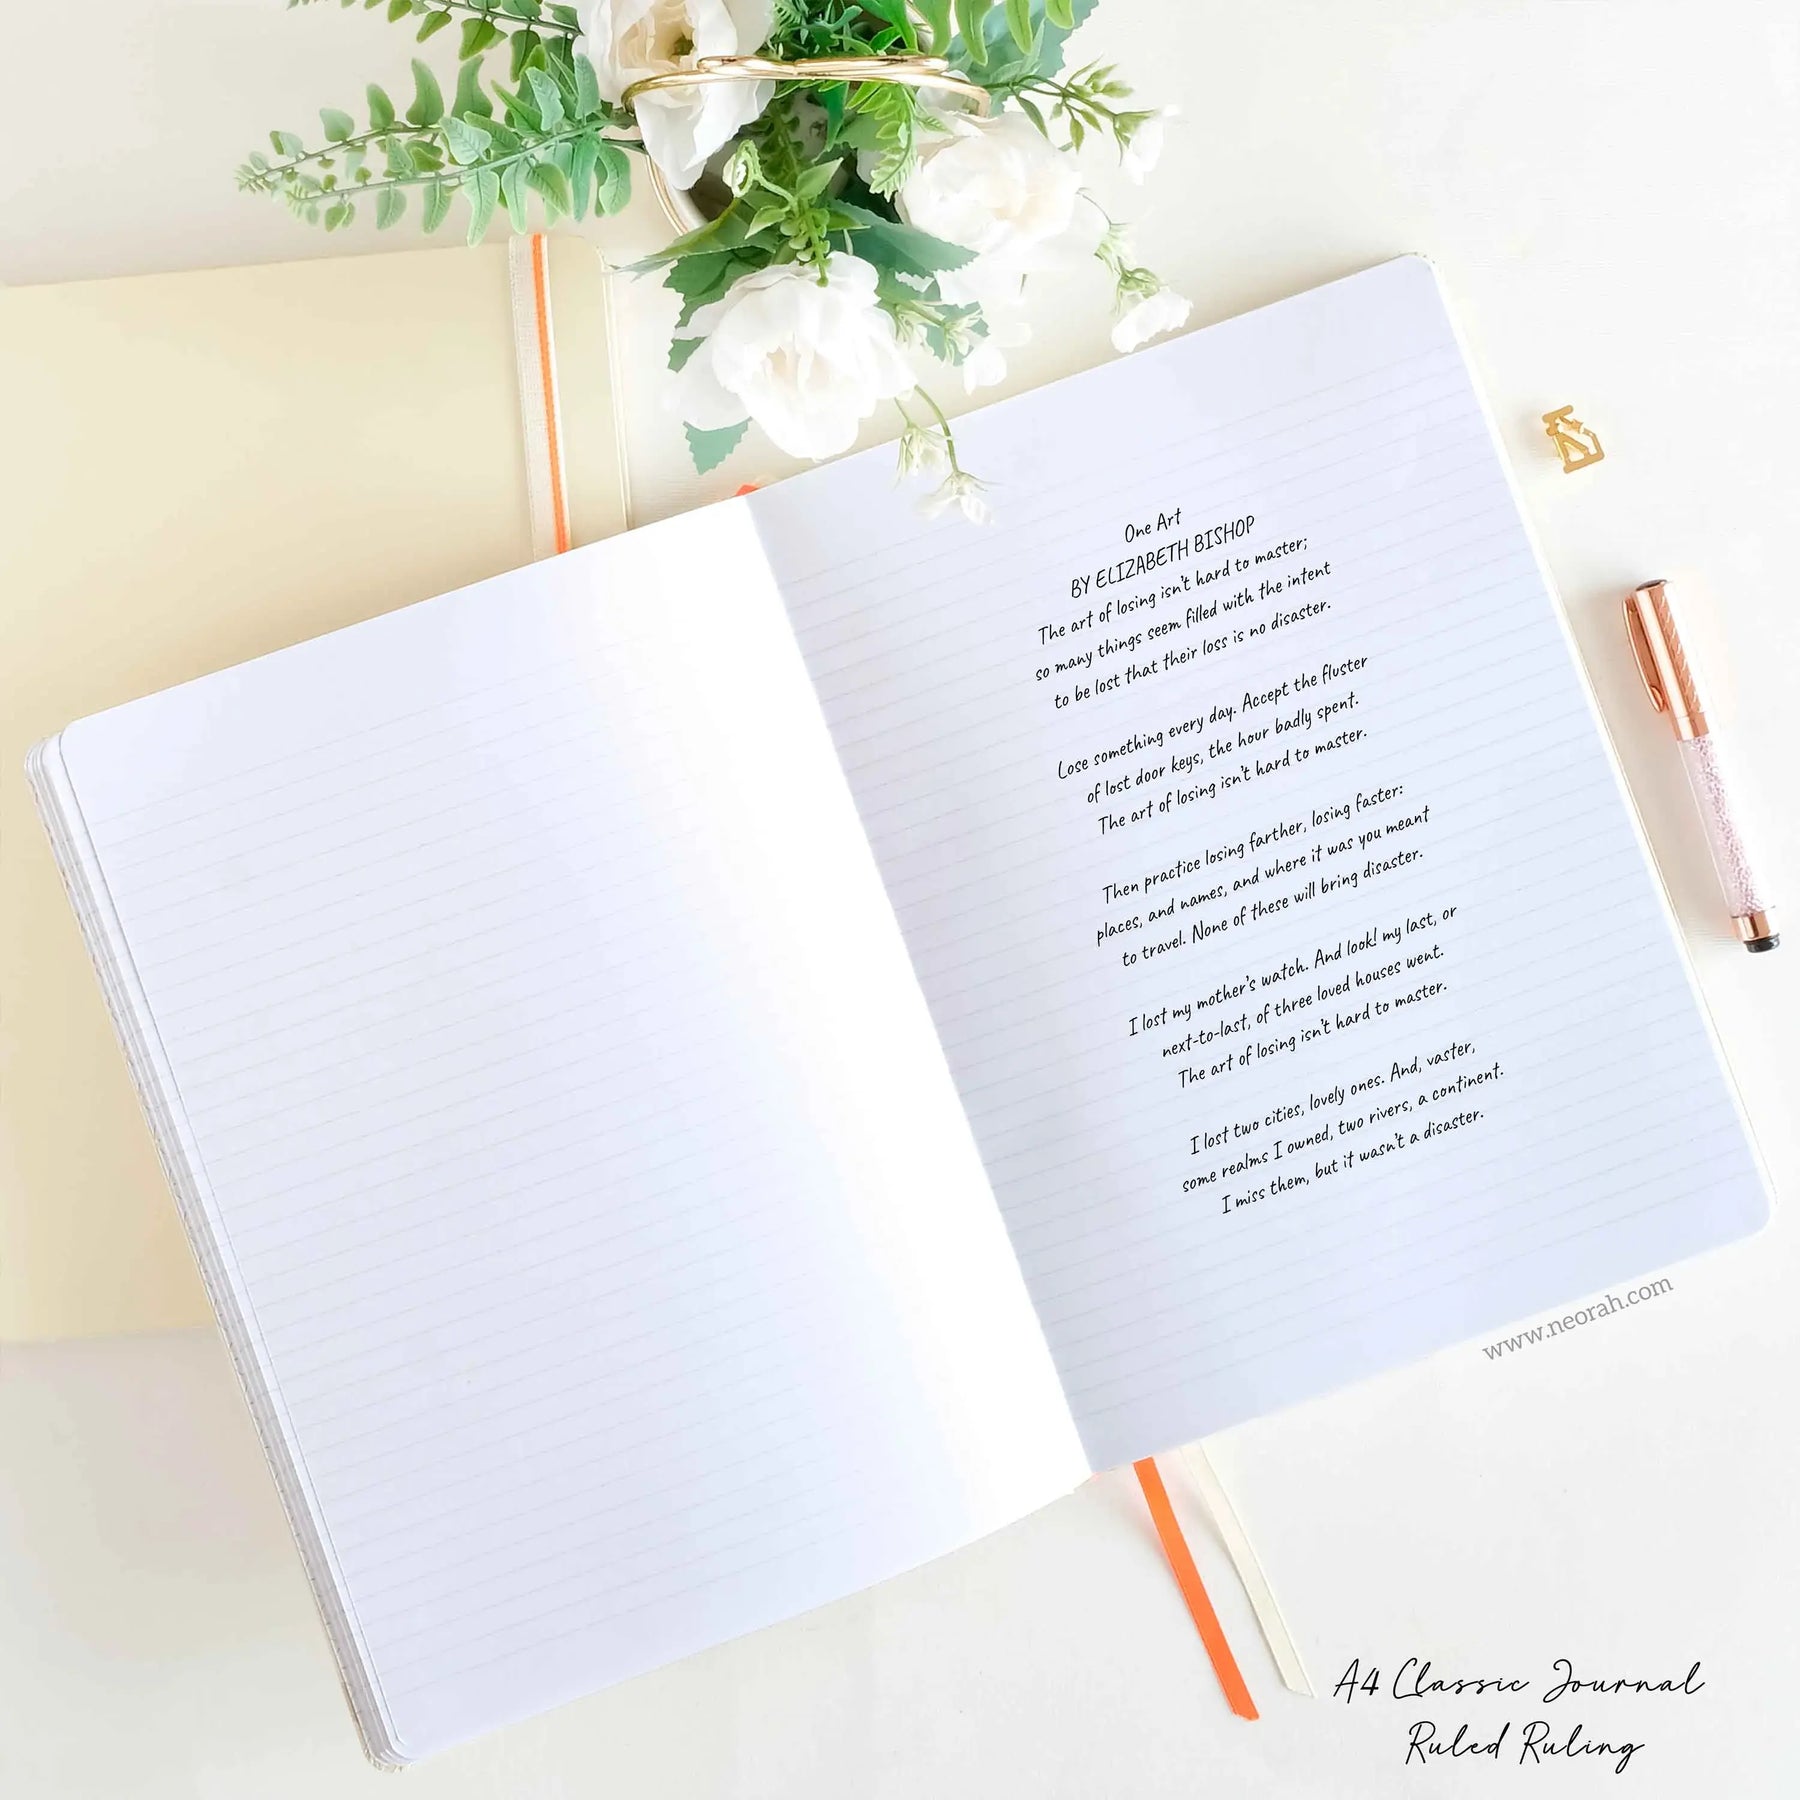 One Art
BY ELIZABETH BISHOP
The art of losing isn't hard to master;
so many things seem filled with the intent
to be lost that their loss is no disaster.
Lose something every day. Accept the fluster
of lost door keys, the hour badly spent.
The art of losing isn't hard to master.
Then practice losing farther, losing faster:
places, and names, and where it was you meant
to travel. None of these will bring disaster.
I lost my mother's watch. And look! my last, or
next-to-last, of three loved houses went.
The art of losing isn't hard to master.
I lost two cities, lovely ones. And, vaster,
some realms I owned, two rivers, a continent.
I miss them, but it wasn't a disaster.
www.neorah.com
A4 Classic Journal
Ruled Ruling